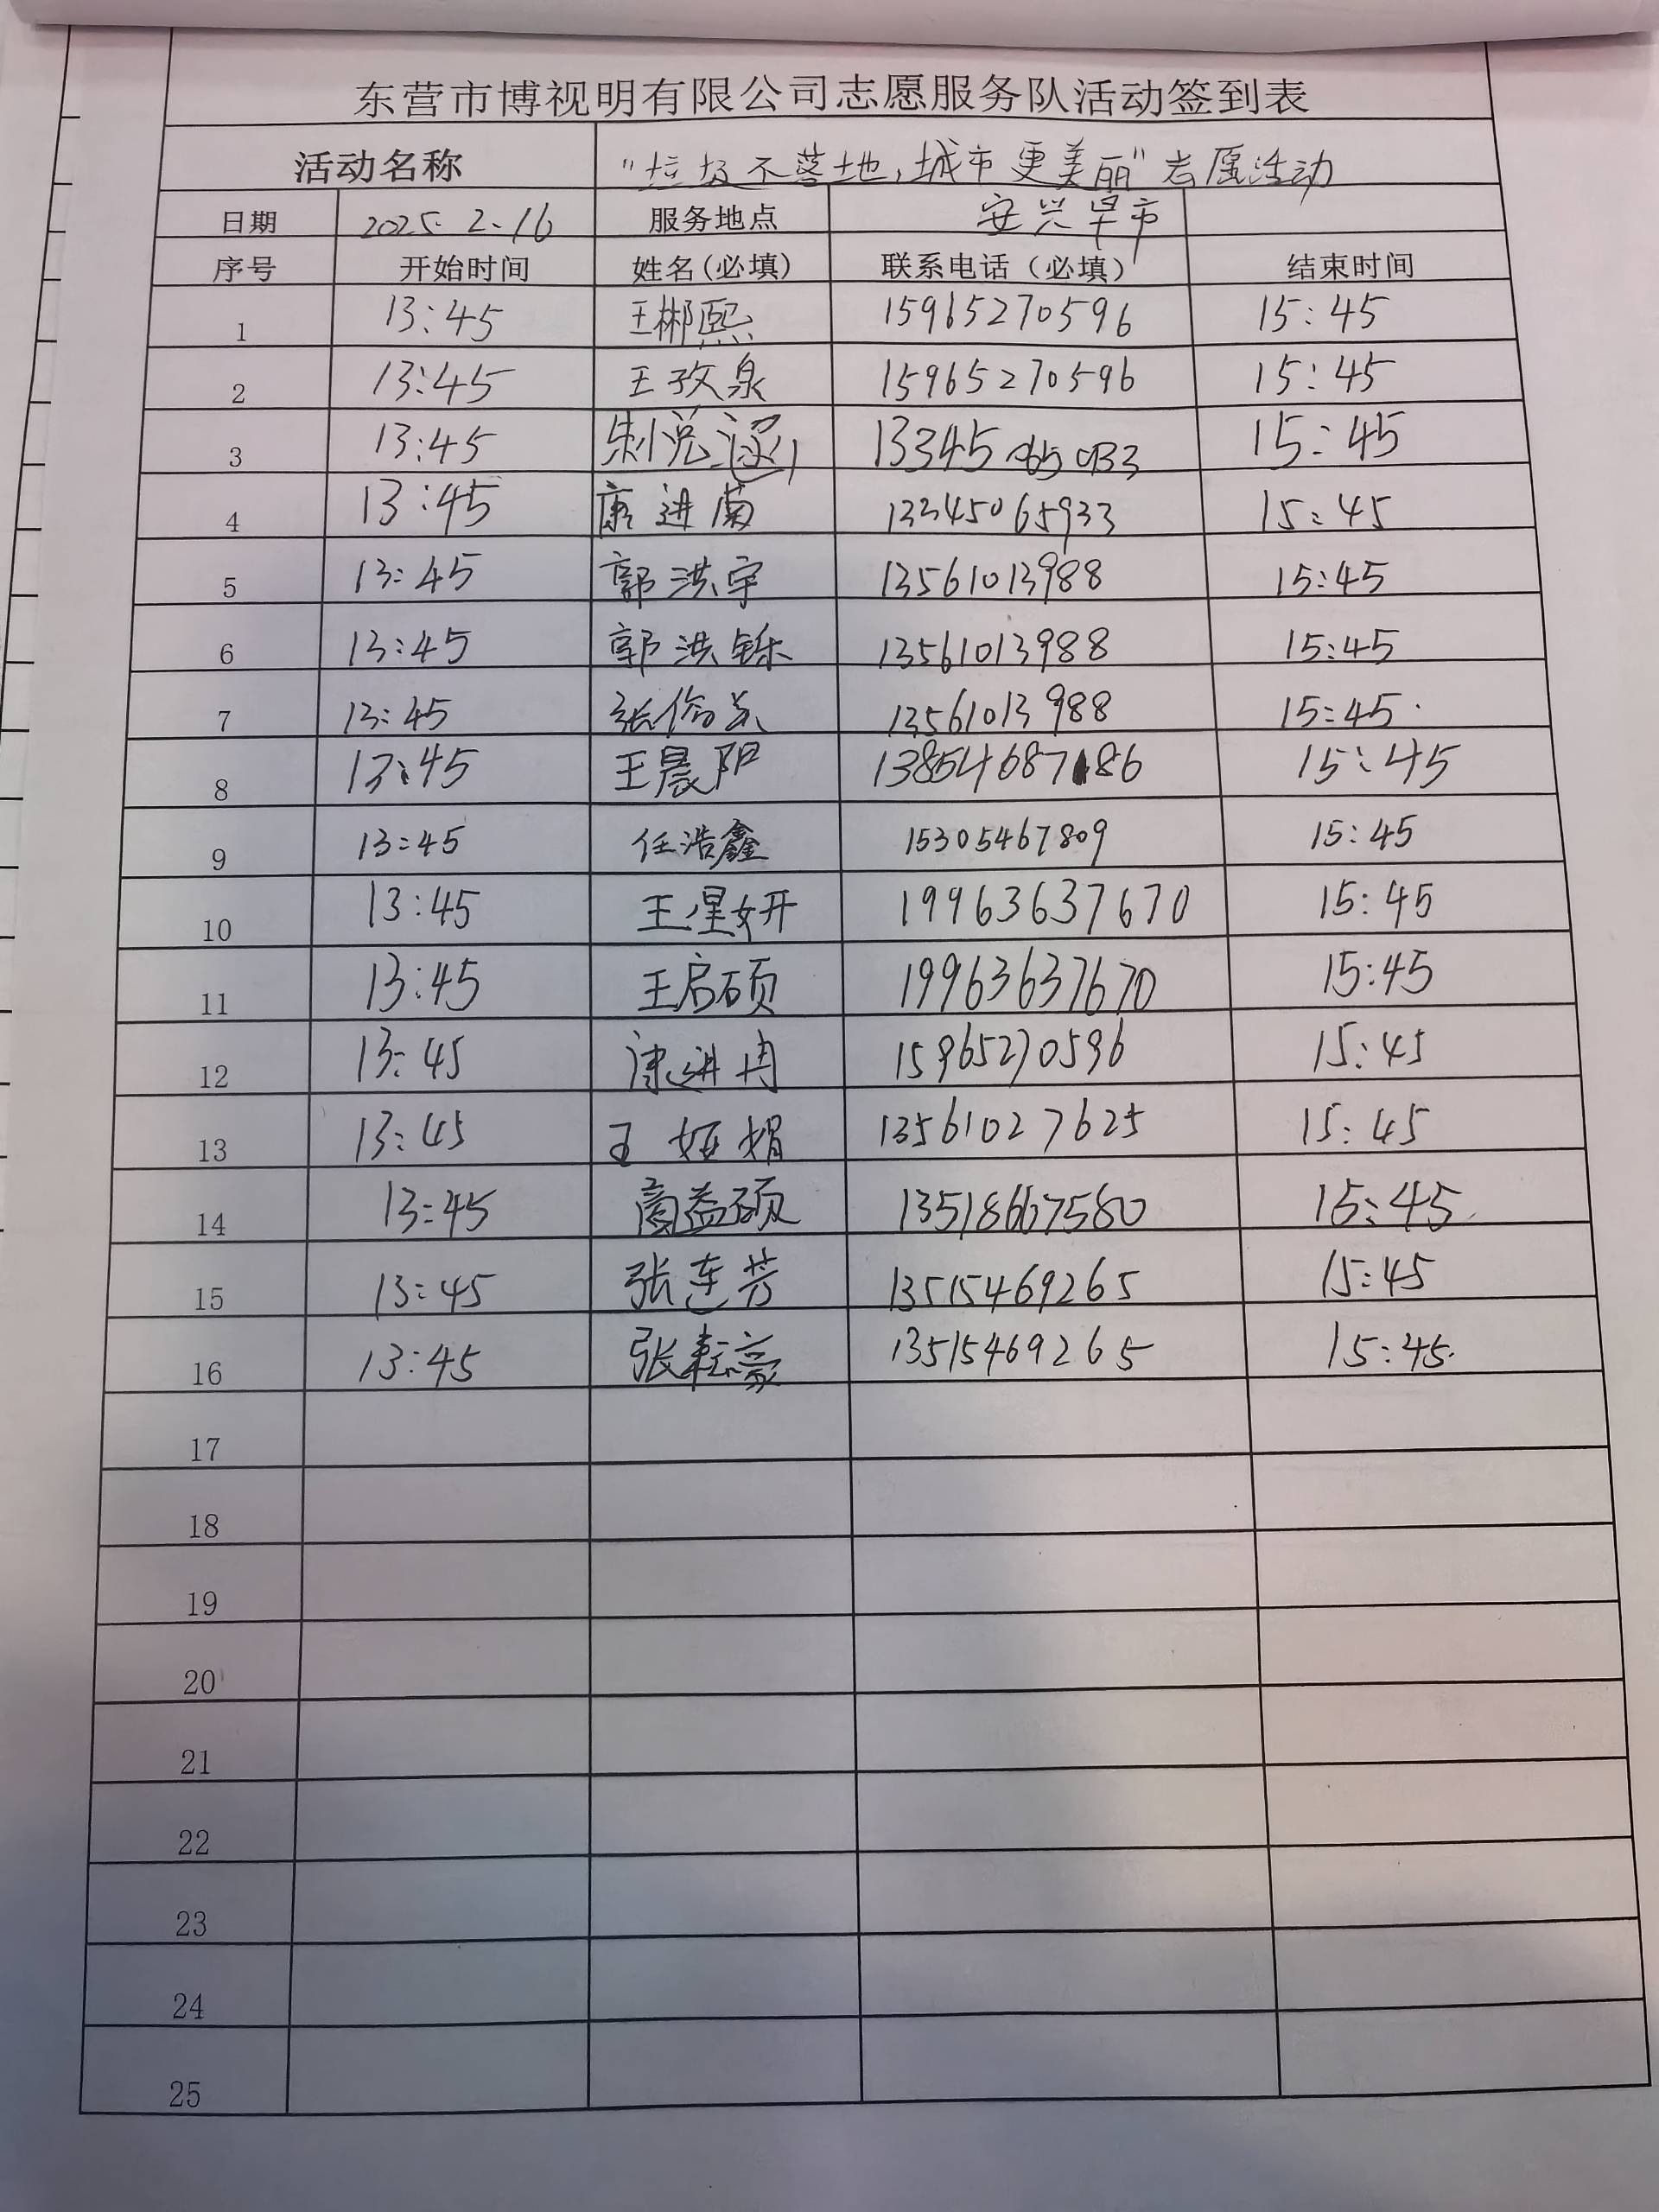 东营市博视明有限公司志愿服务队活动签到表
活动名称 "垃圾不落地,城市更美丽"志愿活动
日期 2025.2.16 服务地点 安兴早市
序号 开始时间 姓名(必填) 联系电话(必填) 结束时间
1 13:45 王彬熙 15965270596 15:45
2 13:45 王孜泉 15965270596 15:45
3 13:45 13345065933 15:45
4 13:45 康进菊 13345065933 15:45
5 13:45 郭洪宇 13561013988 15:45
6 13:45 郭洪铄 13561013988 15:45
7 13:45 13561013988 15:45
8 13:45 王晨阳 13854687186 15:45
9 13:45 任浩鑫 15305467809 15:45
10 13:45 王星妍 19963637670 15:45
11 13:45 王启硕 19963637670 15:45
12 13:45 康进冉 15965270596 15:45
13 13:45 王娅娟 13561027625 15:45
14 13:45 高益硕 13518667580 15:45
15 13:45 张连芳 13515469265 15:45
16 13:45 张耘豪 13515469265 15:45
17
18
19
20
21
22
23
24
25